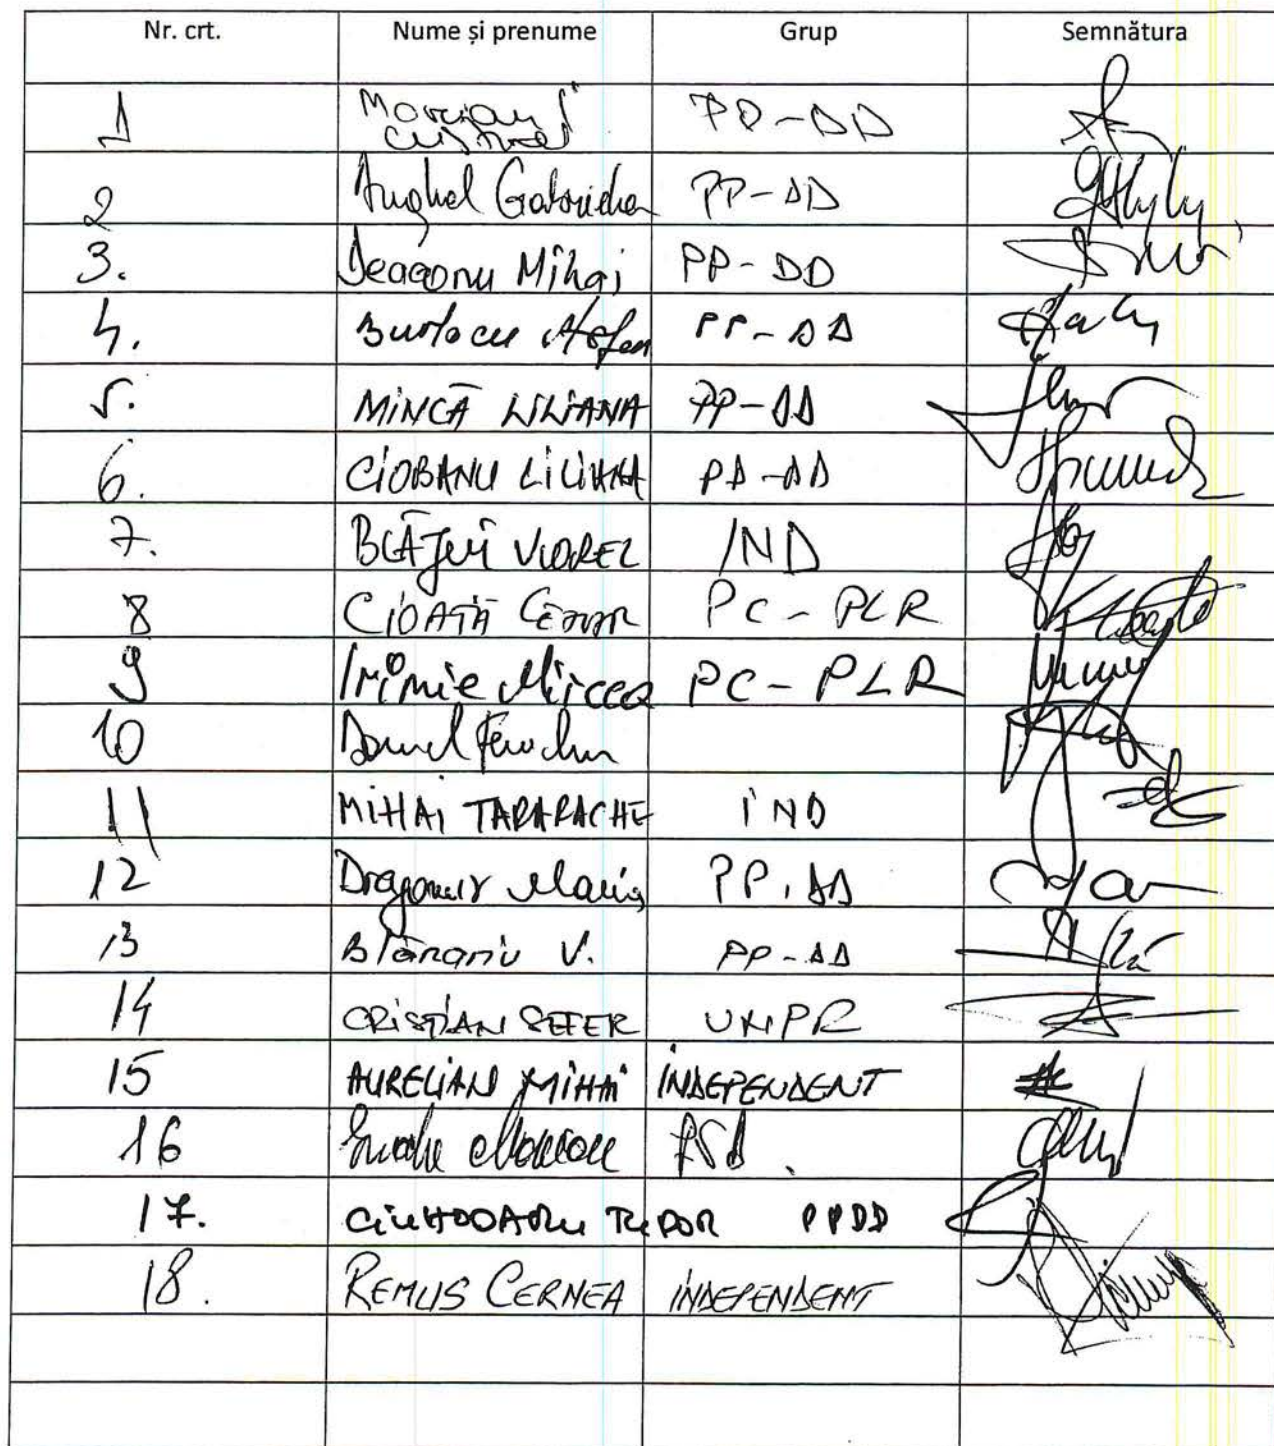 Nr. crt. Nume și prenume Grup Semnătura
1 PP-DD
2 Anghel Gabriela PP-DD
3. Deaconu Mihai PP-DD
4. Burlacu Ștefan PP-DD
5. MINCĂ LILIANA PP-DD
6. CIOBANU LILIANA PP-DD
7. VIOREL IND
8 CIOATĂ CEZAR PC-PLR
9 Irimie Mircea PC-PLR
10
11 MIHAI TARARACHE IND
12 Dragomir Maria PP.DD
13 V. PP-DD
14 CRISTIAN SEFER UNPR
15 AURELIAN MIHAI INDEPENDENT
16 PSD.
17. CIUHODARU TUDOR PPDD
18. REMUS CERNEA INDEPENDENT